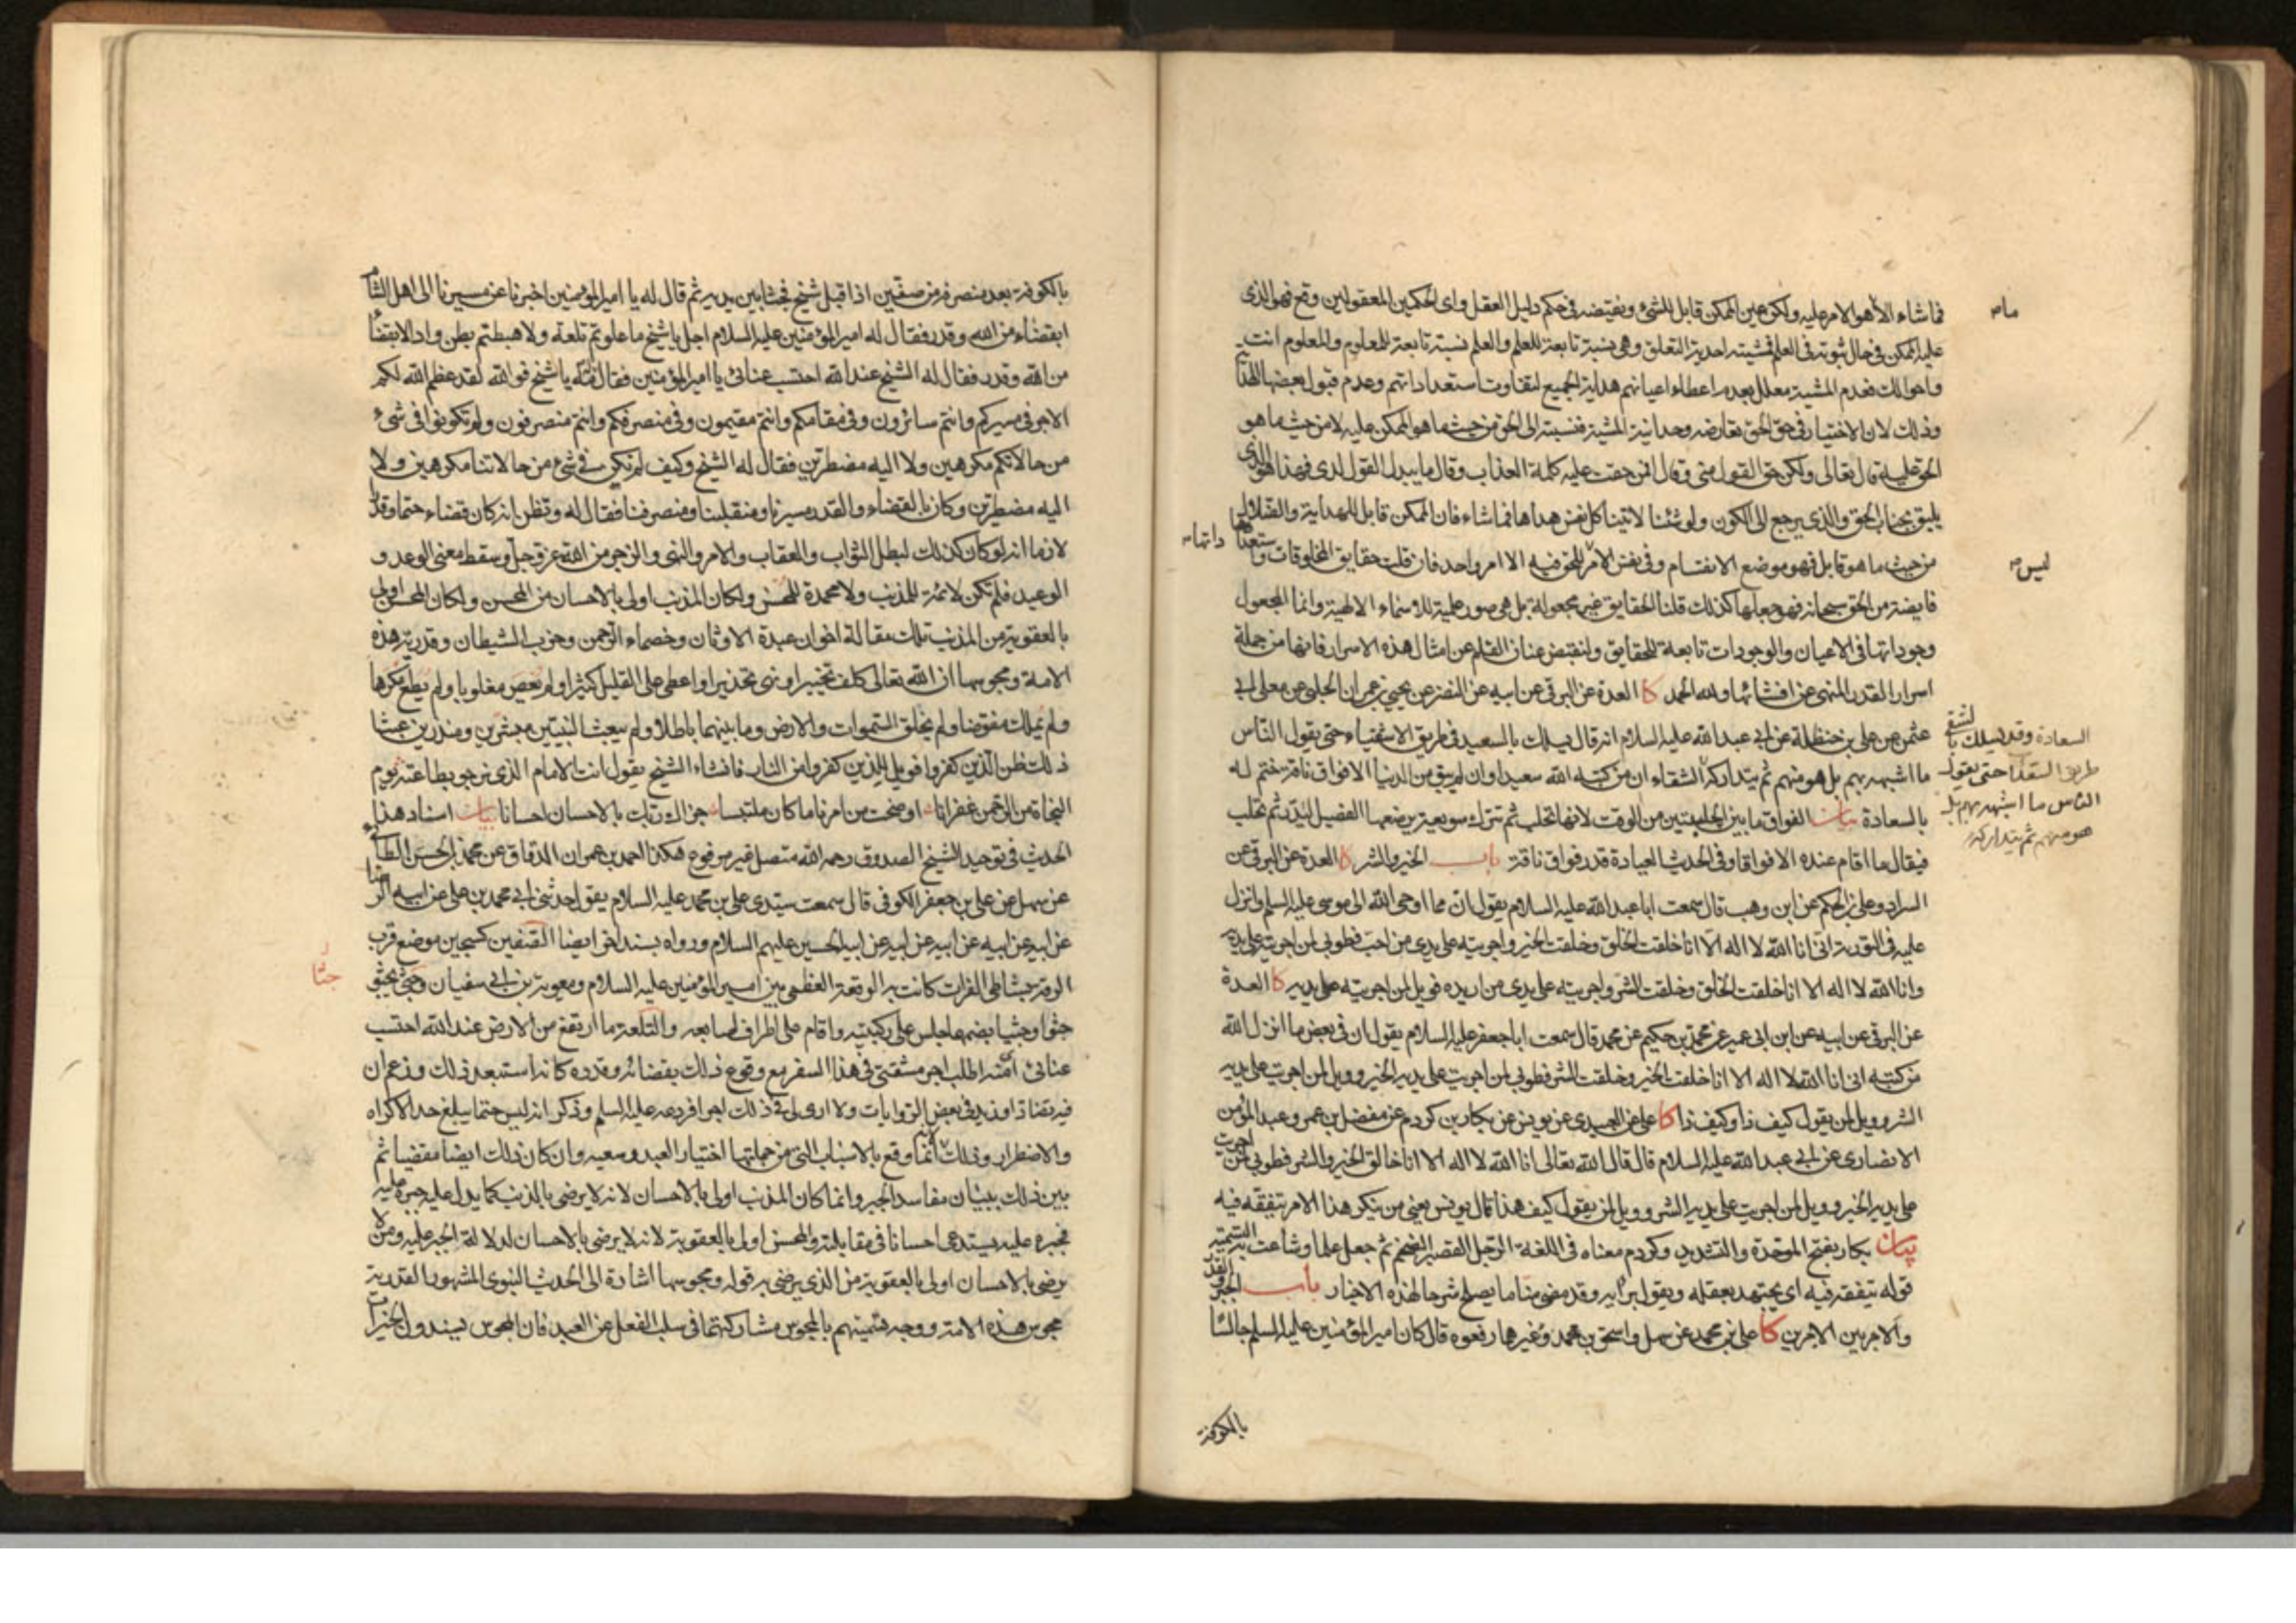 فما شاء الا هو الامر عليه ولكن عين الممكن قابل للشئ ونقيضه في حكم دليل العقل واى الحكمين المعقولين وقع فهو الذى
عليه الممكن في حال ثبوته في العلم فمشيته احدية التعلق وهي نسبة تابعة للعلم والعلم نسبة تابعة للمعلوم والمعلوم انت
واحوالك فعدم المشية معلل بعدم اعطاء اعيانهم هداية الجميع لتفاوت استعداداتهم وعدم قبول بعضها للهداية
وذلك لان الاختيار في حق الحق تعارضه وحدانية المشية فنسبته الى الحق من حيث ما هو الممكن عليه لا من حيث ما هو
الحق عليه قال تعالى ولكن حق القول منى وقال افمن حقت عليه كلمة العذاب وقال ما يبدل القول لدى فهذا هو الذى
يليق بجناب الحق والذى يرجع الى الكون ولو شئنا لاتينا كل نفس هداها فما شاء فان الممكن قابل للهداية والضلال
من حيث ما هو قابل فهو موضع الانقسام وفى نفس الامر للحق فيه الا امر واحد فان قلت حقايق المخلوقات واستعداداتها
فايضة من الحق سبحانه فهو جعلها كذلك قلنا الحقايق غير مجعولة بل هى صور علمية للاسماء الالهية وانما المجعول
وجوداتها في الاعيان والوجودات تابعة للحقايق ولنقبض عنان القلم عن امثال هذه الاسرار فانها من جملة
اسرار القدر المنهى عن افشائها ولله الحمد كا العدة عن البرقى عن ابيه عن النضر عن يحيى بن عمران الحلبى عن معلى ابى
عثمن عن على بن حنظلة عن ابى عبد الله عليه السلام انه قال يسلك بالسعيد في طريق الاشقياء حتى يقول الناس
ما اشبهه بهم بل هو منهم ثم يتداركه الشقاء ان من كتبه الله سعيدا وان لم يبق من الدنيا الا فواق ناقة ختم له
بالسعادة بيان الفواق ما بين الحلبتين من الوقت لانها تحلب ثم تترك سويعة يرضعها الفصيل لتدر ثم تحلب
فيقال ما اقام عنده الا فواقا وفى الحديث العيادة قدر فواق ناقة باب الخير والشر كا العدة عن البرقى عن
السراد وعلى بن الحكم عن ابن وهب قال سمعت ابا عبد الله عليه السلام يقول ان مما اوحى الله الى موسى عليه السلم وانزل
عليه في التورية انى انا الله لا اله الا انا خلقت الخلق وخلقت الخير واجريته على يدى من احب فطوبى لمن اجريته على يديه
وانا الله لا اله الا انا خلقت الخلق وخلقت الشر واجريته على يدى من اريده فويل لمن اجريته على يديه كا العدة
عن البرقى عن ابيه عن ابن ابى عمير عن محمد بن حكيم عن محمد قال سمعت ابا جعفر عليه السلام يقول ان في بعض ما انزل الله
من كتبه انى انا الله لا اله الا انا خلقت الخير وخلقت الشر فطوبى لمن اجريت على يديه الخير وويل لمن اجريت على يديه
الشر وويل لمن يقول كيف ذا وكيف ذا كا على عن العبيدى عن يونس عن بكار بن كردم عن مفضل بن عمر وعبد المؤمن
الانصارى عن ابى عبد الله عليه السلام قال قال الله تعالى انا الله لا اله الا انا خالق الخير والشر فطوبى لمن اجريت
على يديه الخير وويل لمن اجريت على يديه الشر وويل لمن يقول كيف هذا قال يونس يعنى من ينكر هذا الامر بتفقه فيه
بيان بكار بفتح الموحدة والتشديد وكردم معناه في اللغة الرجل القصير الضخم ثم جعل علما وشاعت به التسمية
قوله بتفقه فيه اى يجتهد بعقله ويقول برايه وقد مضى منا ما يصلح شرحا لهذه الاخبار باب الجبر والقدر
والامر بين الامرين كا على بن محمد عن سهل واسحق بن محمد وغيرهما رفعوه قال كان امير المؤمنين عليه السلم جالسا
بالكوفة
السعادة وقد يسلك بالشقى
طريق السعدا حتى يقول
الناس ما اشبهه بهم بل
هو منهم ثم يتداركه
ليس
بالكوفة بعد منصرفه من صفين اذ اقبل شيخ فجثا بين يديه ثم قال له يا امير المؤمنين اخبرنا عن مسيرنا الى اهل الشام
ابقضاء من الله وقدر فقال له امير المؤمنين عليه السلام اجل يا شيخ ما علوتم تلعة ولا هبطتم بطن واد الا بقضاء
من الله وقدر فقال له الشيخ عند الله احتسب عنائى يا امير المؤمنين فقال له مه يا شيخ فوالله لقد عظم الله لكم
الاجر في مسيركم وانتم سائرون وفى مقامكم وانتم مقيمون وفى منصرفكم وانتم منصرفون ولم تكونوا في شىء
من حالاتكم مكرهين ولا اليه مضطرين فقال له الشيخ وكيف لم نكن في شىء من حالاتنا مكرهين ولا
اليه مضطرين وكان بالقضاء والقدر مسيرنا ومنقلبنا ومنصرفنا فقال له وتظن انه كان قضاء حتما وقدرا
لازما انه لو كان كذلك لبطل الثواب والعقاب والامر والنهى والزجر من الله عز وجل وسقط معنى الوعد و
الوعيد فلم تكن لائمة للمذنب ولا محمدة للمحسن ولكان المذنب اولى بالاحسان من المحسن ولكان المحسن اولى
بالعقوبة من المذنب تلك مقالة اخوان عبدة الاوثان وخصماء الرحمن وحزب الشيطان وقدرية هذه
الامة ومجوسها ان الله تعالى كلف تخييرا ونهى تحذيرا واعطى على القليل كثيرا ولم يعص مغلوبا ولم يطع مكرها
ولم يملك مفوضا ولم يخلق السموات والارض وما بينهما باطلا ولم يبعث النبيين مبشرين ومنذرين عبثا
ذلك ظن الذين كفروا فويل للذين كفروا من النار فانشاء الشيخ يقول انت الامام الذى نرجو بطاعته يوم
النجاة من الرحمن غفرانا اوضحت من امرنا ما كان ملتبسا جزاك ربك بالاحسان احسانا بيان اسناد هذا
الحديث في توحيد الشيخ الصدوق رحمه الله متصل غير مرفوع هكذا احمد بن عمران الدقاق عن محمد بن الحسن الطائى
عن سهل عن على بن جعفر الكوفى قال سمعت سيدى على بن محمد عليه السلام يقول حدثنى ابى محمد بن على عن ابيه الرضا
عن ابيه عن ابيه عن ابيه عن ابيه عن ابيه الحسين عليهم السلام ورواه بسند اخر ايضا الصفين كسجين موضع قرب
الرقة بشاطى الفرات كانت به الوقعة العظمى بين امير المؤمنين عليه السلام ومعوية بن ابى سفيان وجثى يجثو
جثوا وجثيا بضمهما جلس على ركبتيه واقام على اطراف اصابعه والتلعة ما ارتفع من الارض عند الله احتسب
عنائى اى منه اطلب اجر مشقتى في هذا السفر مع وقوع ذلك بقضائه وقدره كانه استبعد ذلك وزعم ان
فيه تضادا وزيد في بعض الروايات ولا ارى لى في ذلك اجرا فردعه عليه السلم وذكر انه ليس حتما يبلغ حد الاكراه
والاضطرار وذلك لانه انما وقع بالاسباب التى من جملتها اختيار العبد وسعيه وان كان ذلك ايضا مقضيا ثم
بين ذلك ببيان مفاسد الجبر وانما كان المذنب اولى بالاحسان لانه لا يرضى بالذنب كما يدل عليه جبره عليه
فجبره عليه يستدعى احسانا في مقابلته والمحسن اولى بالعقوبة لانه لا يرضى بالاحسان لدلالة الجبر عليه ومن لا
يرضى بالاحسان اولى بالعقوبة من الذى يرضى به قوله ومجوسها اشارة الى الحديث النبوى المشهور القدرية
مجوس هذه الامة ووجه تسميتهم بالمجوس مشاركتهما في سلب الفعل عن العبد فان المجوس يسندون الخيرات
جثا